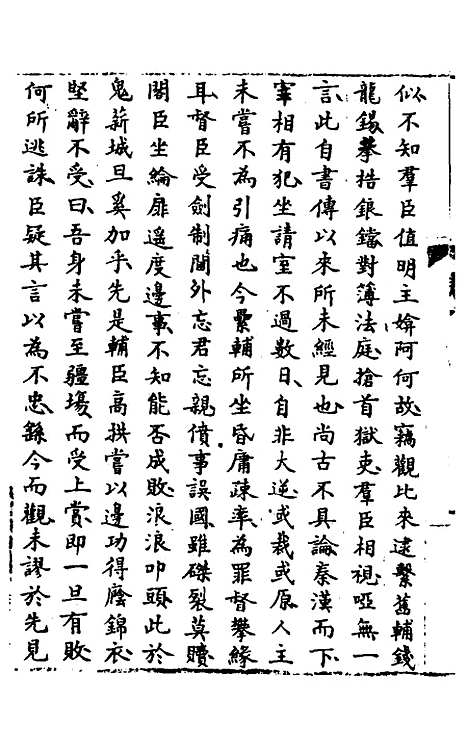 似不知羣臣值明主媕阿何故竊觀比來逮繫舊輔錢
龍錫拲梏銀鐺對簿法庭搶首獄吏羣臣相視啞無一
言此自書傳以來所未經見也尚古不具論秦漢而下
宰相有犯坐請室不過數日自非大逆或裁或原人主
未嘗不為引痛也今纍輔所坐昏庸疎率為罪督攀緣
耳督臣受劍制閫外忘君忘親僨事誤國雖磔裂莫贖
閣臣坐綸扉遥度邊事不知能否成敗浪浪叩頭此於
鬼薪城旦奚加乎先是輔臣高拱嘗以邊功得廕錦衣
堅辭不受曰吾身未嘗至疆場而受上賞即一旦有敗
何所逃誅臣疑其言以為不忠繇今而觀未謬於先見